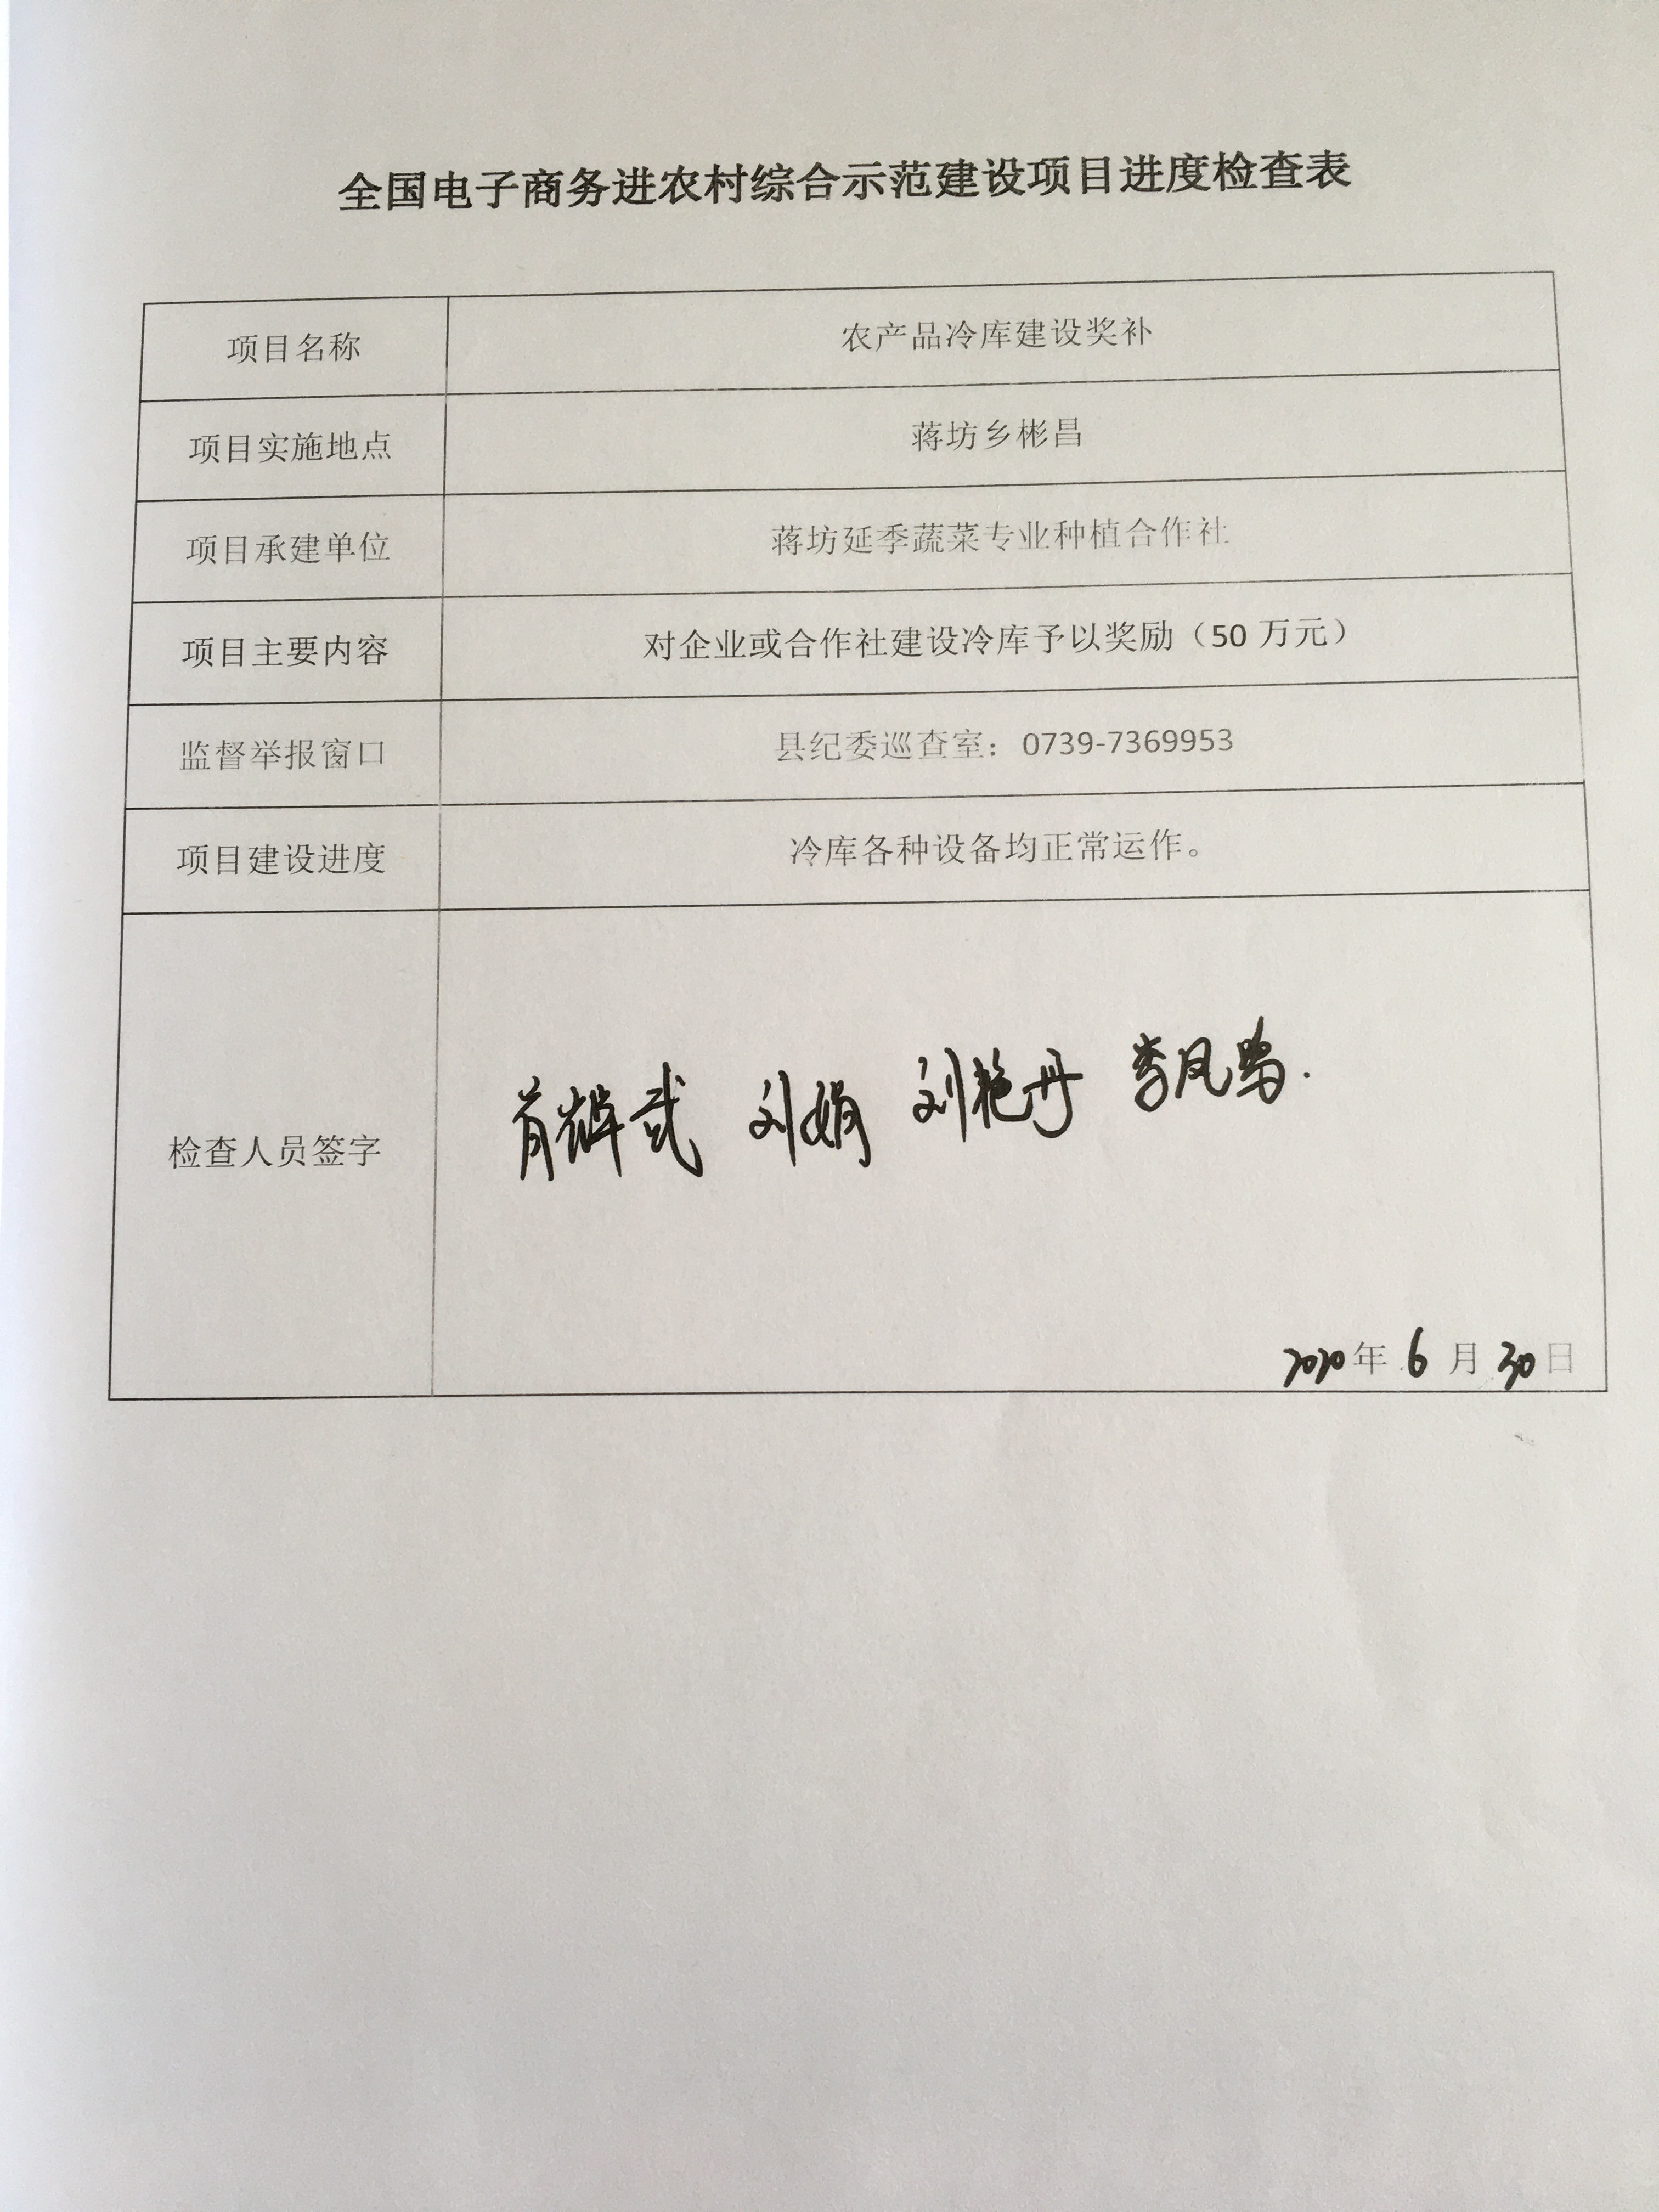 全国电子商务进农村综合示范建设项目进度检查表
项目名称 农产品冷库建设奖补
项目实施地点 蒋坊乡彬昌
项目承建单位 蒋坊延季蔬菜专业种植合作社
项目主要内容 对企业或合作社建设冷库予以奖励（50 万元）
监督举报窗口 县纪委巡查室：0739-7369953
项目建设进度 冷库各种设备均正常运作。
检查人员签字 刘娟 刘艳丹
2020年 6 月 30日